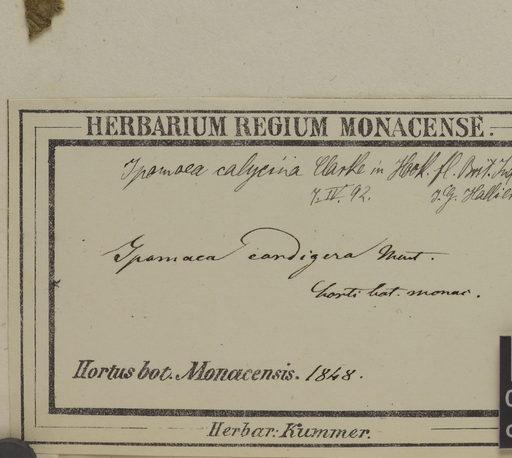 HERBARIUM REGIUM MONACENSE.
Ipomoea calycina Clarke in Hook. fl. Brit. Ind
7. IV. 92. J. G. Hallier
Ipomaea cardigera Mart.
horti bot. monac.
Hortus bot. Monacensis. 1848.
Herbar: Kummer.